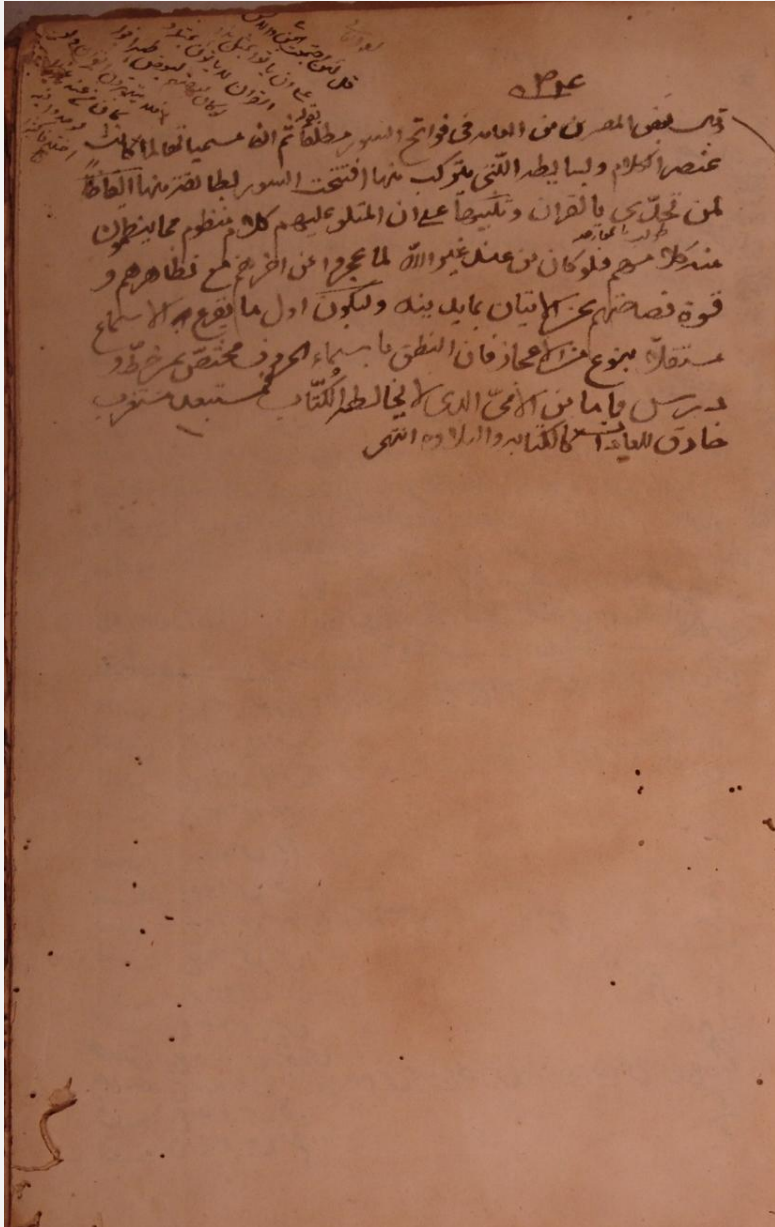 قل لئن اجتمعت الانس
على ان ياتوا بمثل هذا
القران لا ياتون بمثله و
لو كان بعضهم لبعض ظهيرا
افلا يتدبرون القران ولو
كان من عند غير الله
لوجدوا فيه
اختلافا كثيرا
قال بعض المفسرين من العامة في فواتح السور مطلقا ثم انه مسمياتها لما كانت
عنصر الكلام وبسايطه اللتى يتركب منها افتتحت السور بطايفة منها ايقاظا
لمن تحدّى بالقران وتنبيها على ان المتلو عليهم كلام منظوم مما ينظمون
منه كلامهم فلو كان من عند غير الله لما عجزوا عن اخرهم مع تظاهرهم و
قوة فصاحتهم عن الاتيان بما يدينه وليكون اول ما يقرع الاسماع
مستقلا بنوع من الاعجاز فان النطق باسماء الحروف مختصّ بمن خطّ و
درس فاما من الامىّ الذى لا يخالط الكُتّاب فمستبعد مستغرب
خارق للعادة كالكتابة والتلاوة انتهى